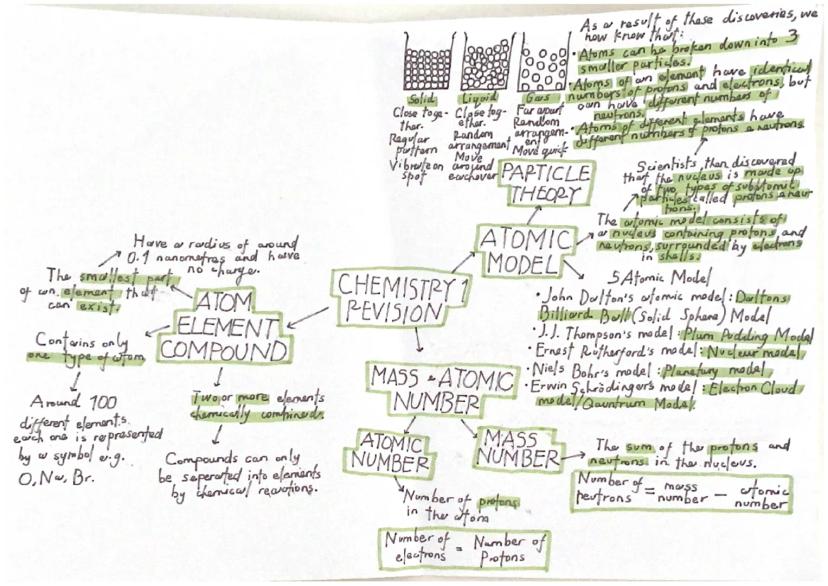 CHEMISTRY 1
REVISION
ATOMIC
MODEL
PARTICLE
THEORY
Solid
Close toge-
ther.
Regular
pattern
Vibrate on
spot
Liquid
Close tog-
ether.
Random
arrangement
Move
around
eachover
Gas
Far apart
Random
arrangem-
ent
Move quick
As a result of these discoveries, we
now know that:
• Atoms can be broken down into 3
smaller particles.
• Atoms of an element have identical
numbers of protons and electrons, but
can have different numbers of
neutrons.
• Atoms of different elements have
different numbers of protons & neutrons
Scientists, then discovered
that the nucleus is made up
of two types of subatomic
particles called protons & neur
trons.
The atomic model consists of
a nucleus containing protons, and
neutrons, surrounded by electrons
in shells.
5 Atomic Model
• John Dalton's atomic model: Daltons
Billiard Ball (Solid Sphere) Model
• J.J. Thompson's model: Plum Pudding Model
• Ernest Rutherford's model: Nuclear model
• Niels Bohr's model: Planetary model
• Erwin Schrödinger's model: Electron Cloud
model/Qauntrum Model.
ATOM
ELEMENT
COMPOUND
The smallest part
of an element that
can exist.
Have a radius of around
0.1 nanometres and have
no charge.
Contains only
one type of atom
Around 100
different elements.
each one is represented
by a symbol e.g.
O, Na, Br.
Two or more elements
chemically combined.
Compounds can only
be seperated into elements
by chemical reactions.
MASS & ATOMIC
NUMBER
ATOMIC
NUMBER
Number of protons
in the atom
Number of electrons = Number of Protons
MASS
NUMBER
The sum of the protons and
neutrons in the nucleus.
Number of neutrons = mass number - atomic number